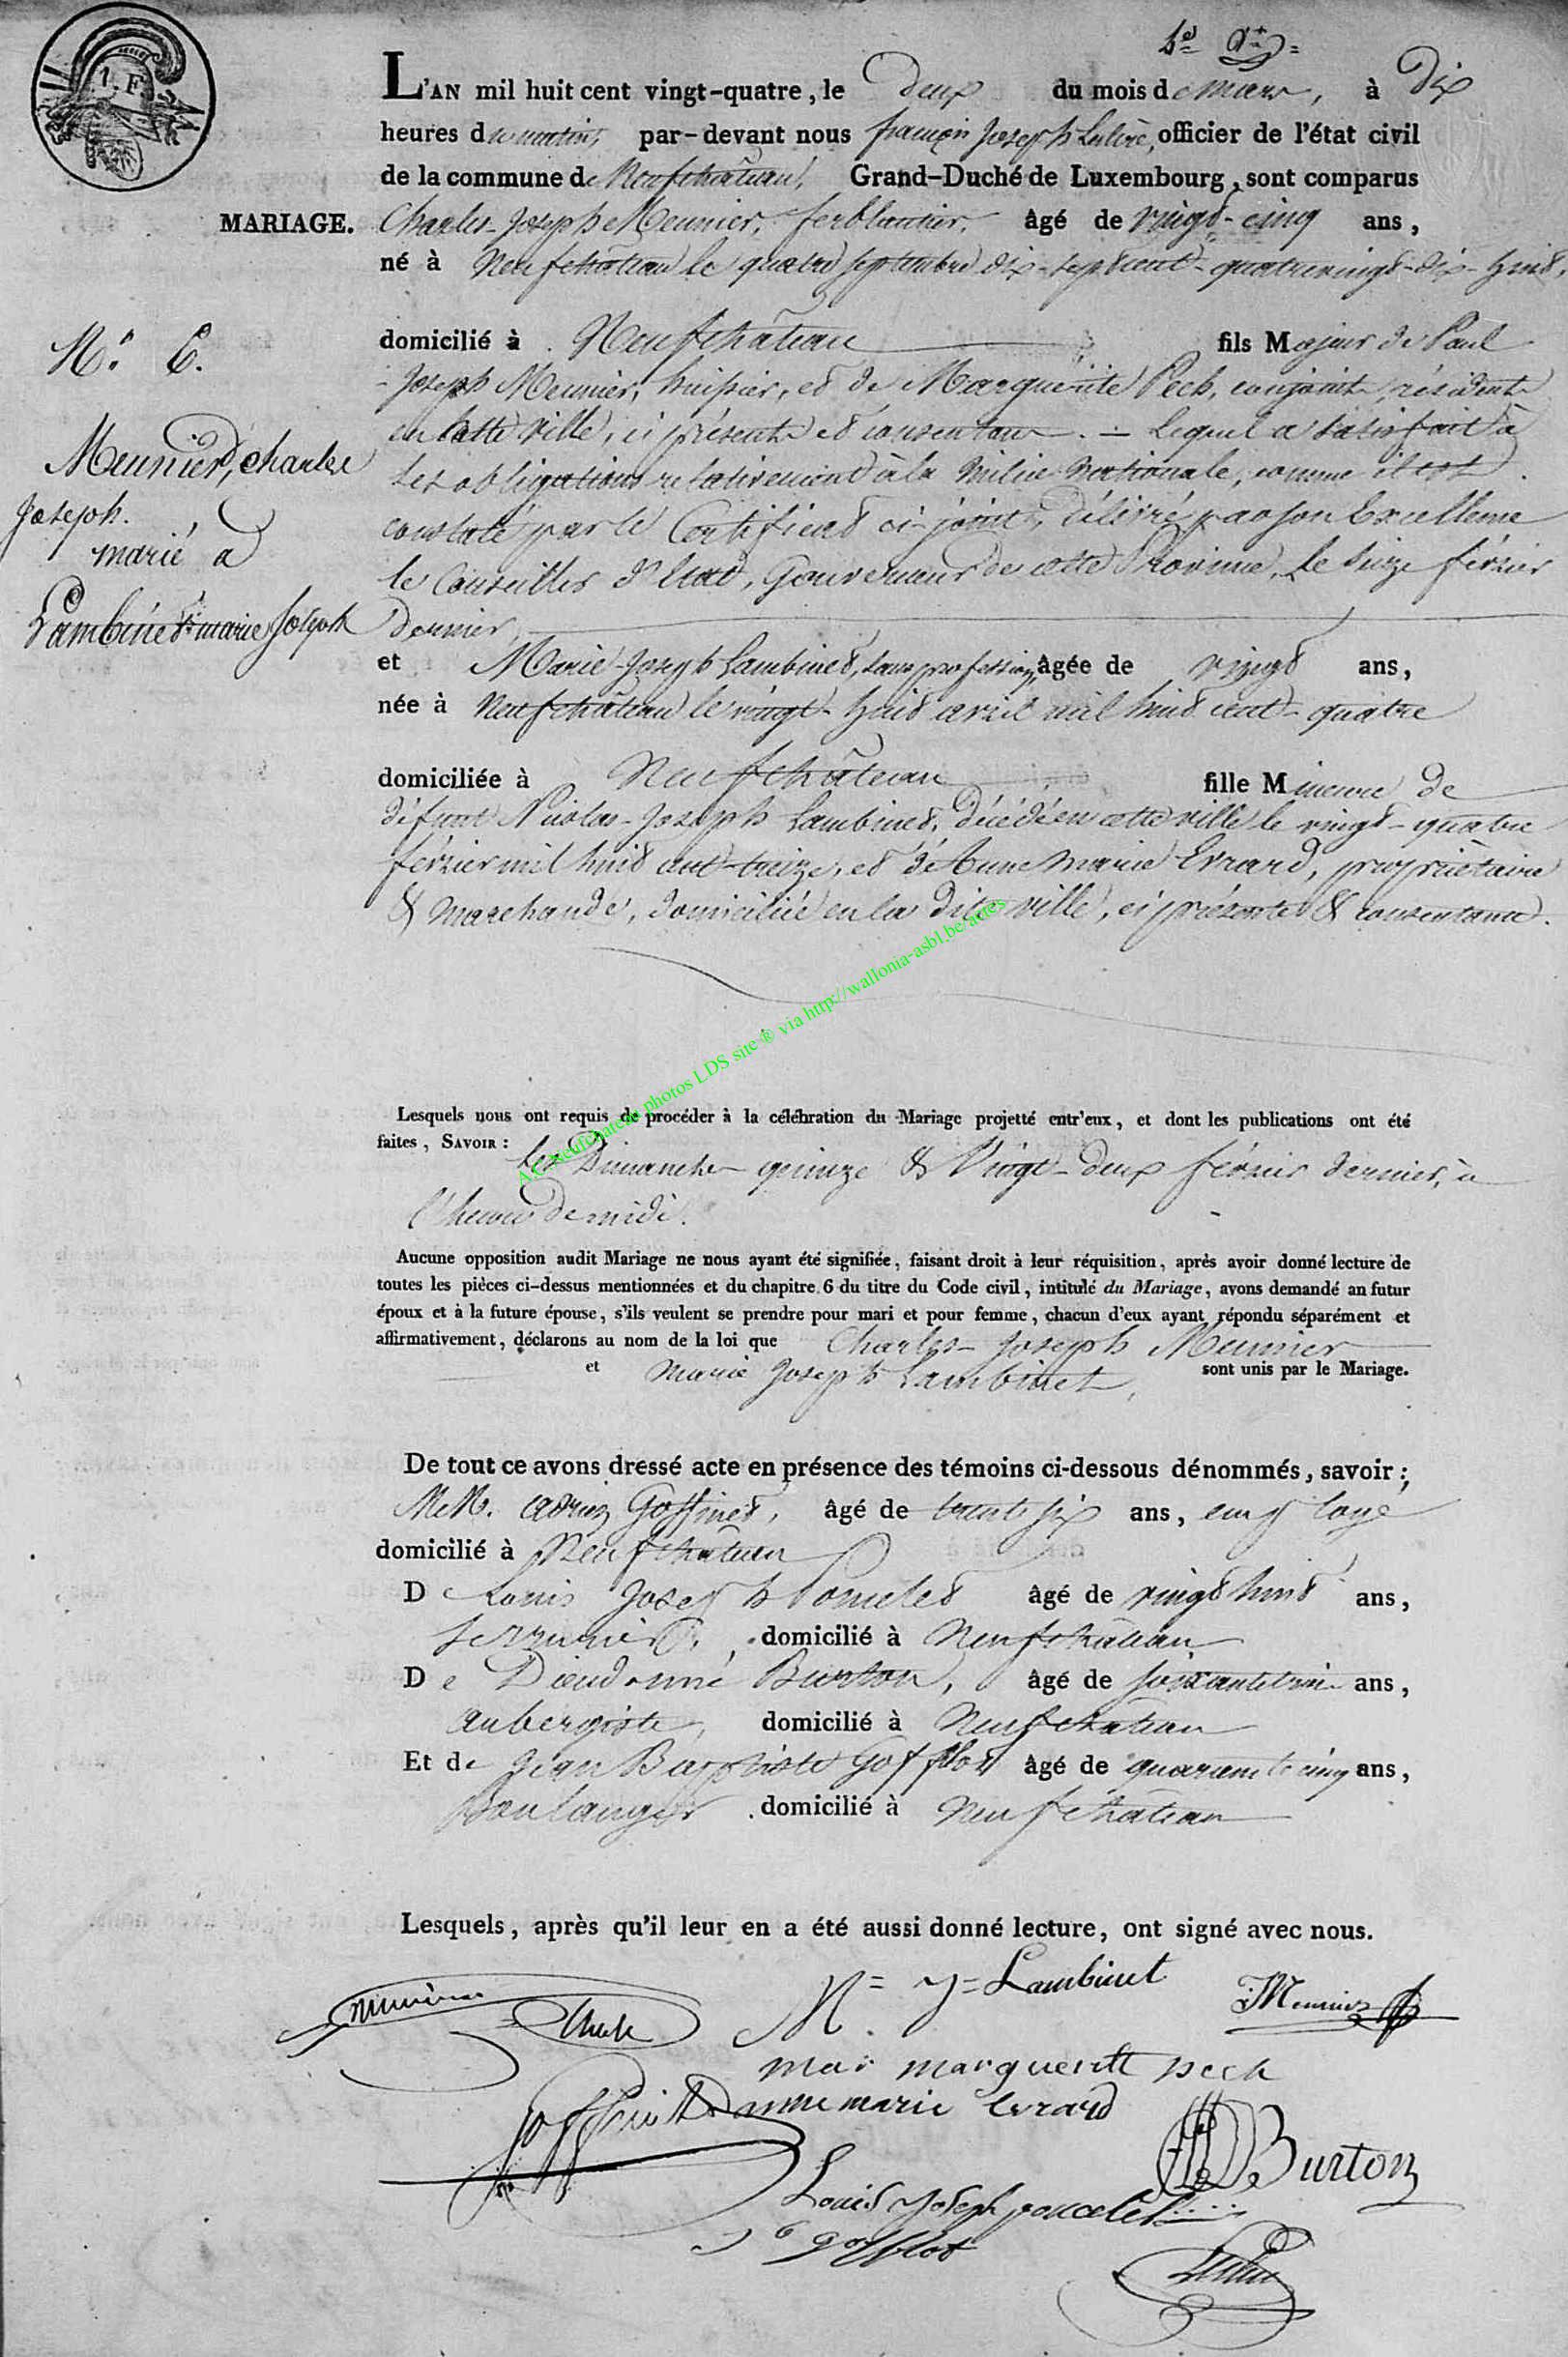 1. F
L'AN mil huit cent vingt-quatre, le deux du mois de mars, à Dix
heures du matin, par-devant nous françois Joseph officier de l'état civil
de la commune de Neufchâteau, Grand-Duché de Luxembourg, sont comparus
MARIAGE. Charles-Joseph Meunier, ferblantier, âgé de vingt-cinq ans,
né à Neufchâteau le quatre septembre dix-sept cent-quatrevingt-dix-huit,
domicilié à Neufchâteau fils Majeur de Paul
-Joseph Meunier, huissier, et de Marguerite Peck, conjoints, résidents
en cette ville, ci présents et consentans. - Lequel a satisfait à
ses obligations relativement à la Milice Nationale, comme il est
constaté par le Certificat ci-joint, délivré par son Excellence
le Conseiller d'Etat, Gouverneur de cette Province, le seize février
dernier,
N.° 6.
Meunier, charles
Joseph.
marié à
Lambinet marie Joseph
et Marie-Joseph Lambinet, sans profession, âgée de vingt ans,
née à Neufchâteau le vingt-huit avril mil huit cent-quatre
domiciliée à Neufchâteau fille Mineure de
défunt Nicolas-Joseph Lambinet, décédé en cette ville le vingt-quatre
février mil huit cent-treize, et de Anne Marie Evrard, propriétaire
& marchande, domiciliée en la dite ville, ci présente & consentante.
photos LDS site ® via http://wallonia-asbl.be/actes
Lesquels nous ont requis de procéder à la célébration du Mariage projetté entr'eux, et dont les publications ont été
faites, SAVOIR : Les Dimanches quinze & Vingt-deux février dernier, à
l'heure de midi.
Aucune opposition audit Mariage ne nous ayant été signifiée, faisant droit à leur réquisition, après avoir donné lecture de
toutes les pièces ci-dessus mentionnées et du chapitre 6 du titre du Code civil, intitulé du Mariage, avons demandé au futur
époux et à la future épouse, s'ils veulent se prendre pour mari et pour femme, chacun d'eux ayant répondu séparément et
affirmativement, déclarons au nom de la loi que Charles-Joseph Meunier
et Marie Joseph Lambinet, sont unis par le Mariage.
De tout ce avons dressé acte en présence des témoins ci-dessous dénommés, savoir :
Goffinet, âgé de trente six ans, employé
domicilié à Neufchâteau
De Louis Joseph Poncelet âgé de vingt huit ans,
serrurier, domicilié à Neufchâteau
De Dieudonné Burton, âgé de ans,
aubergiste, domicilié à Neufchâteau
Et de Jean Baptiste Gofflot âgé de quarante cinq ans,
Boulanger domicilié à Neufchâteau
Lesquels, après qu'il leur en a été aussi donné lecture, ont signé avec nous.
M = J = Lambinet
Meunier
marguerite peck
anne marie evrard
Burton
Louis Joseph poncelet
gofflot